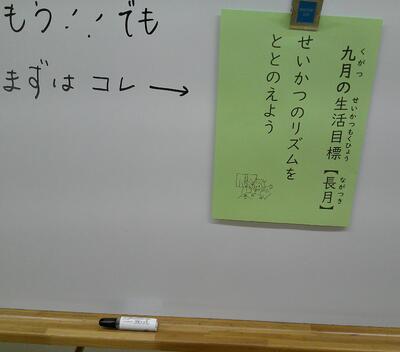 もう!!でも
まずは コレ→
九月の生活目標【長月】
くがつ
せいかつもくひょう
ながつき
せいかつのリズムを
ととのえよう